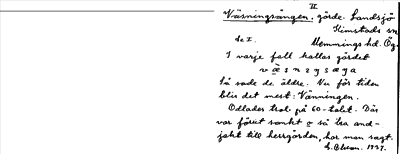 II
Väsningsängen, gärde. Landsjö
Kimstads sn
Se I. Memmings hd. Ög.
I varje fall kallas gärdet
Så sade de äldre. Nu för tiden
blir det mest: Vänningen.
Odlades trol. på 60-talet. Där
var förut sankt o så bra and-
jakt till herrgården, har man sagt.
1937.